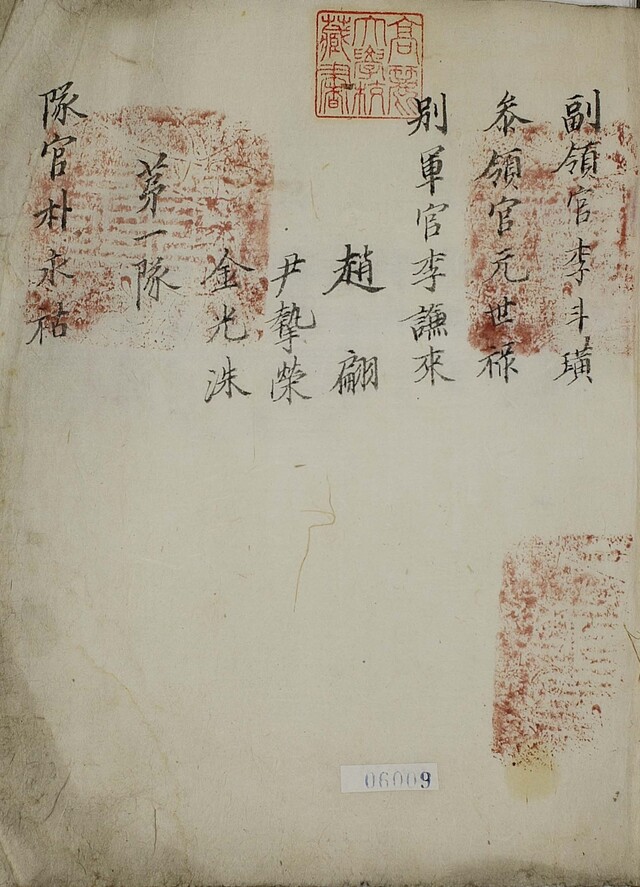 副領官李斗璜
叅領官元世祿
別軍官李謙來
趙翩
尹摯榮
金光洙
第一隊
隊官朴永祜
高麗大學校藏書
06009